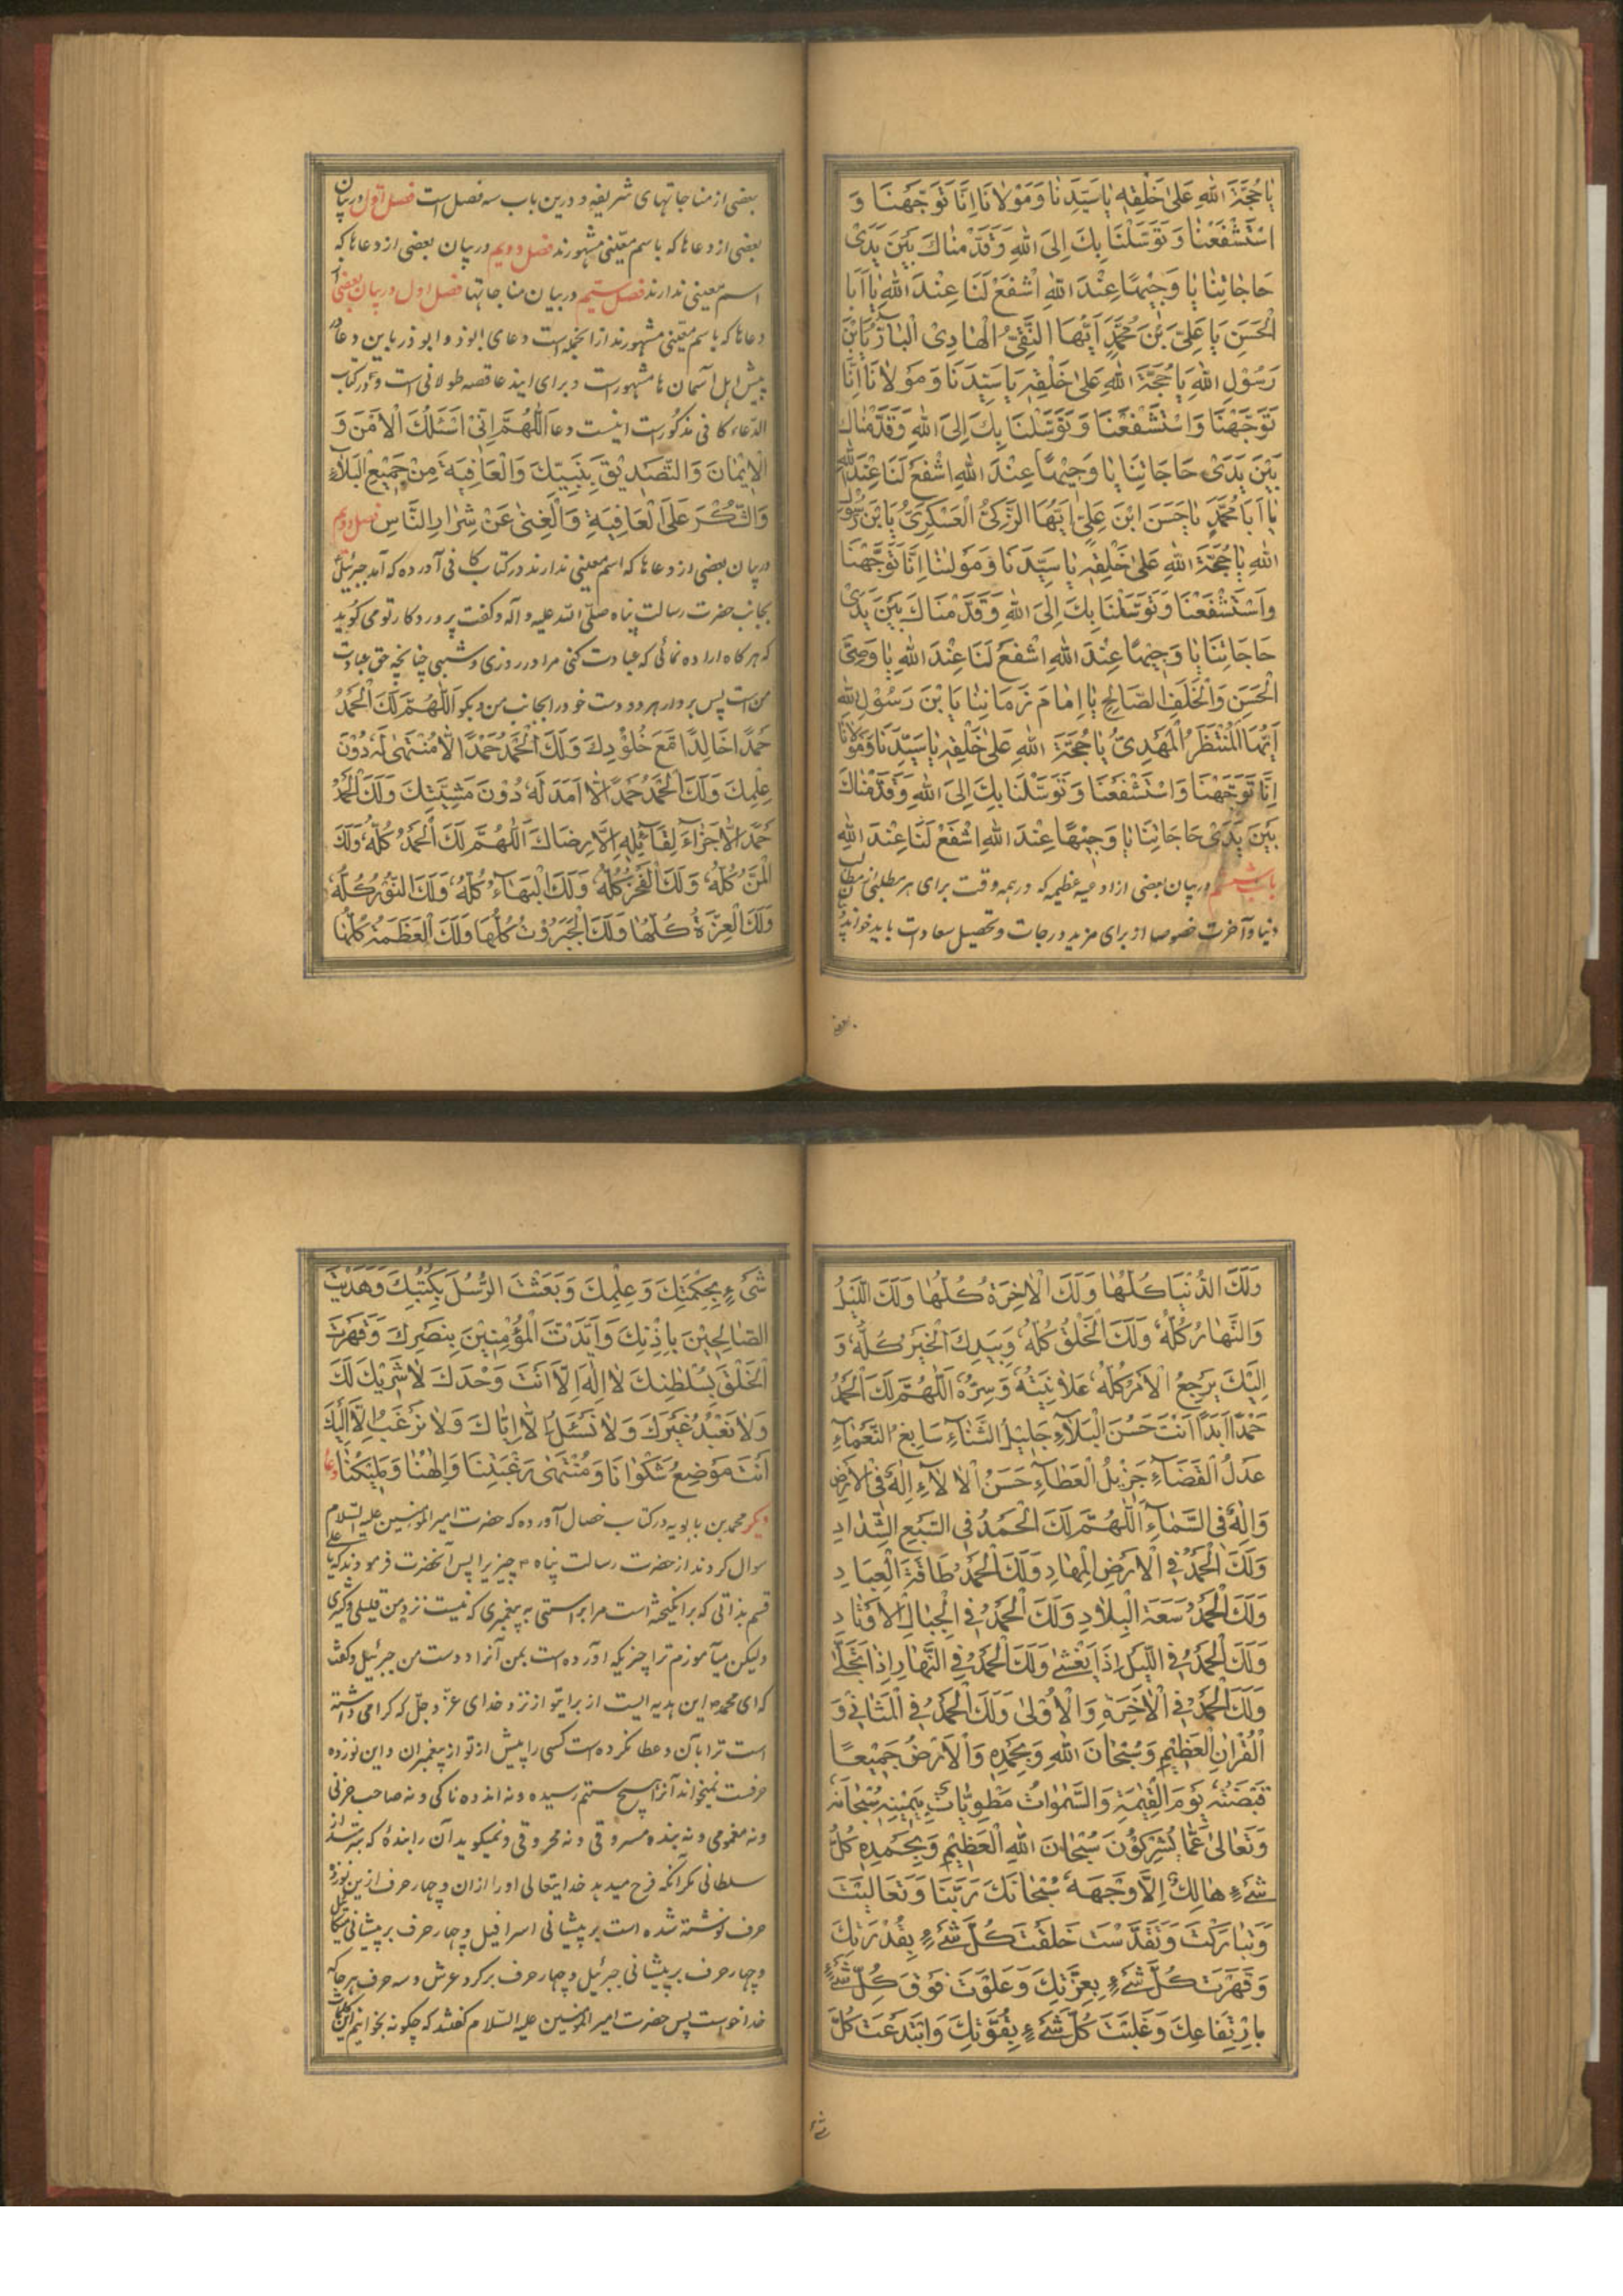 يا حُجَّةَ اللهِ عَلى خَلْقِهِ يا سَيِّدَنا وَمَوْلانا اِنّا تَوَجَّهْنا وَ
اسْتَشْفَعْنا وَتَوَسَّلْنا بِكَ اِلَى اللهِ وَقَدَّمْناكَ بَيْنَ يَدَىْ
حاجاتِنا يا وَجِيهًا عِنْدَ اللهِ اشْفَعْ لَنا عِنْدَ اللهِ يا اَبَا
الْحَسَنِ يا عَلِىَّ بْنَ مُحَمَّدٍ اَيُّهَا النَّقِىُّ الْهادِى الْبارُّ يَا بْنَ
رَسُوْلِ اللهِ يا حُجَّةَ اللهِ عَلى خَلْقِهِ يا سَيِّدَنا وَمَوْلانا اِنّا
تَوَجَّهْنا وَاسْتَشْفَعْنا وَتَوَسَّلْنا بِكَ اِلَى اللهِ وَقَدَّمْناكَ
بَيْنَ يَدَىْ حاجاتِنا يا وَجِيهًا عِنْدَ اللهِ اشْفَعْ لَنا عِنْدَ اللهِ
يا اَبا مُحَمَّدٍ يا حَسَنَ ابْنَ عَلِىٍّ اَيُّهَا الزَّكِىُّ الْعَسْكَرِىُّ يَا بْنَ رَسُوْلِ
اللهِ يا حُجَّةَ اللهِ عَلى خَلْقِهِ يا سَيِّدَنا وَمَوْلٰنا اِنّا تَوَجَّهْنا
وَاسْتَشْفَعْنا وَتَوَسَّلْنا بِكَ اِلَى اللهِ وَقَدَّمْناكَ بَيْنَ يَدَىْ
حاجاتِنا يا وَجِيهًا عِنْدَ اللهِ اشْفَعْ لَنا عِنْدَ اللهِ يا وَصِىَّ
الْحَسَنِ وَالْخَلَفَ الصّالِحِ يا اِمامَ زَمانِنا يَا بْنَ رَسُوْلِ اللهِ
اَيُّهَا الْمُنْتَظَرُ الْمَهْدِىُّ يا حُجَّةَ اللهِ عَلى خَلْقِهِ يا سَيِّدَنا وَمَوْلانا
اِنّا تَوَجَّهْنا وَاسْتَشْفَعْنا وَتَوَسَّلْنا بِكَ اِلَى اللهِ وَقَدَّمْناكَ
بَيْنَ يَدَىْ حاجاتِنا يا وَجِيهًا عِنْدَ اللهِ اشْفَعْ لَنا عِنْدَ اللهِ
باب ششم در بیان بعضی از ادعیه عظیمه که در همه وقت برای هر مطلبی از مطالب
دنیا و آخرت خصوصا از برای مزید درجات و تحصیل سعادات باید خواند
بعضی
بعضی از مناجاتهای شریفه و درین باب سه فصل است فصل اول در بیان
بعضی از دعاها که باسم معیّنی مشهورند فصل دویم در بیان بعضی از دعاها که
اسم معینی ندارند فصل سیم در بیان مناجاتها فصل اول در بیان بعضی از
دعاها که باسم معیّنی مشهورند از انجمله است دعای ابوذر و ابوذر باین دعا
پیش اهل آسمان ها مشهور است و برای ایندعا قصه طولانی است و در کتاب
الدّعاء کافی مذکور است اینست دعا اَللّٰهُمَّ اِنِّىْ اَسْئَلُكَ الْاَمْنَ وَ
الْاِيْمانَ وَالتَّصْدِيْقَ بِنَبِيِّكَ وَالْعافِيَةَ مِنْ جَمِيْعِ الْبَلاءِ
وَالشُّكْرَ عَلَى الْعافِيَةِ وَالْغِنى عَنْ شِرارِ النّاسِ فصل دویم
در بیان بعضی از دعاها که اسم معینی ندارند در کتاب کافی آورده که آمد جبرئیل
بجانب حضرت رسالت پناه صلّی الله علیه و آله و گفت پروردگار تو می گوید
که هر گاه اراده نمائی که عبادت کنی مرا در روزی و شبی چنانچه حق عبادت
من است پس بردار هر دو دست خود را بجانب من و بگو اَللّٰهُمَّ لَكَ الْحَمْدُ
حَمْدًا خالِدًا مَّعَ خُلُوْدِكَ وَلَكَ الْحَمْدُ حَمْدًا لا مُنْتَهٰى لَهُ دُوْنَ
عِلْمِكَ وَلَكَ الْحَمْدُ حَمْدًا لا اَمَدَ لَهُ دُوْنَ مَشِيَّتِكَ وَلَكَ الْحَمْدُ
حَمْدًا لا جَزاءَ لِقائِلِهِ اِلّا رِضاكَ اَللّٰهُمَّ لَكَ الْحَمْدُ كُلُّهُ وَلَكَ
الْمَنُّ كُلُّهُ وَلَكَ الْفَخْرُ كُلُّهُ وَلَكَ الْبَهاءُ كُلُّهُ وَلَكَ النُّوْرُ كُلُّهُ
وَلَكَ الْعِزَّةُ كُلُّها وَلَكَ الْجَبَرُوْتُ كُلُّها وَلَكَ الْعَظَمَةُ كُلُّها
وَلَكَ الدُّنْيا كُلُّها وَلَكَ الْاٰخِرَةُ كُلُّها وَلَكَ اللَّيْلُ
وَالنَّهارُ كُلُّهُ وَلَكَ الْخَلْقُ كُلُّهُ وَبِيَدِكَ الْخَيْرُ كُلُّهُ وَ
اِلَيْكَ يَرْجِعُ الْاَمْرُ كُلُّهُ عَلانِيَتُهُ وَسِرُّهُ اَللّٰهُمَّ لَكَ الْحَمْدُ
حَمْدًا اَبَدًا اَنْتَ حَسَنُ الْبَلاءِ جَلِيْلُ الثَّناءِ سابِغُ النَّعْماءِ
عَدْلُ الْقَضاءِ جَزِيْلُ الْعَطاءِ حَسَنُ الْاٰلاءِ اِلٰهٌ فِى الْاَرْضِ
وَاِلٰهٌ فِى السَّماءِ اَللّٰهُمَّ لَكَ الْحَمْدُ فِى السَّبْعِ الشِّدادِ
وَلَكَ الْحَمْدُ فِى الْاَرْضِ الْمِهادِ وَلَكَ الْحَمْدُ طاقَةَ الْعِبادِ
وَلَكَ الْحَمْدُ سَعَةَ الْبِلادِ وَلَكَ الْحَمْدُ فِى الْجِبالِ الْاَوْتادِ
وَلَكَ الْحَمْدُ فِى اللَّيْلِ اِذا يَغْشٰى وَلَكَ الْحَمْدُ فِى النَّهارِ اِذا تَجَلّٰى
وَلَكَ الْحَمْدُ فِى الْاٰخِرَةِ وَالْاُوْلٰى وَلَكَ الْحَمْدُ فِى الْمَثانِىْ وَ
الْقُرْاٰنِ الْعَظِيْمِ وَسُبْحانَ اللهِ وَبِحَمْدِهِ وَالْاَرْضُ جَمِيْعًا
قَبْضَتُهُ يَوْمَ الْقِيٰمَةِ وَالسَّمٰواتُ مَطْوِيّاتٌ بِيَمِيْنِهِ سُبْحانَهُ
وَتَعالى عَمّا يُشْرِكُوْنَ سُبْحانَ اللهِ الْعَظِيْمِ وَبِحَمْدِهِ كُلُّ
شَىْءٍ هالِكٌ اِلّا وَجْهَهُ سُبْحانَكَ رَبَّنا وَتَعالَيْتَ
وَتَبارَكْتَ وَتَقَدَّسْتَ خَلَقْتَ كُلَّ شَىْءٍ بِقُدْرَتِكَ
وَقَهَرْتَ كُلَّ شَىْءٍ بِعِزَّتِكَ وَعَلَوْتَ فَوْقَ كُلِّ شَىْءٍ
بِارْتِفاعِكَ وَغَلَبْتَ كُلَّ شَىْءٍ بِقُوَّتِكَ وَابْتَدَعْتَ كُلَّ
شیء
شَىْءٍ بِحِكْمَتِكَ وَعِلْمِكَ وَبَعَثْتَ الرُّسُلَ بِكُتُبِكَ وَهَدَيْتَ
الصّالِحِيْنَ بِاِذْنِكَ وَاَيَّدْتَ الْمُؤْمِنِيْنَ بِنَصْرِكَ وَقَهَرْتَ
الْخَلْقَ بِسُلْطٰنِكَ لا اِلٰهَ اِلّا اَنْتَ وَحْدَكَ لا شَرِيْكَ لَكَ
وَلا نَعْبُدُ غَيْرَكَ وَلا نَسْئَلُ اِلّا اِيّاكَ وَلا نَرْغَبُ اِلّا اِلَيْكَ
اَنْتَ مَوْضِعُ شَكْوانا وَمُنْتَهٰى رَغْبَتِنا وَاِلٰهُنا وَمَلِيْكُنا دعا
دیگر محمد بن بابویه در کتاب خصال آورده که حضرت امیر المؤمنین علیه السّلام
سوال کردند از حضرت رسالت پناه چیزیرا پس آنحضرت فرمودند که یا علی
قسم بذاتی که برانگیخته است مرا براستی به پیغمبری که نیست نزد من قلیلی و کثیری
ولیکن میآموزم ترا چیزیکه آورده است بمن آنرا دوست من جبرئیل و گفت
که ای محمد این هدیه ایست از برای تو از نزد خدای عزّ و جلّ که گرامی داشته
است ترا بآن و عطا نکرده است کسی را پیش از تو از پیغمبران و این نوزده
حرفست نمیخواند آنرا هیچ ستم رسیده و نه اندوه ناکی و نه صاحب حزنی
و نه مغمومی و نه بنده مسروقی و نه محروقی و نمیگوید آن را بندهٔ که بترسد از
سلطانی مگر آنکه فرح میدهد خدایتعالی او را از ان و چهار حرف ازین نوزده
حرف نوشته شده است بر پیشانی اسرافیل و چهار حرف بر پیشانی میکائیل
و چهار حرف بر پیشانی جبرئیل و چهار حرف بر گرد عرش و سه حرف هر جا که
خدا خواست پس حضرت امیر المؤمنین علیه السّلام گفتند که چگونه بخوانیم این کلمات